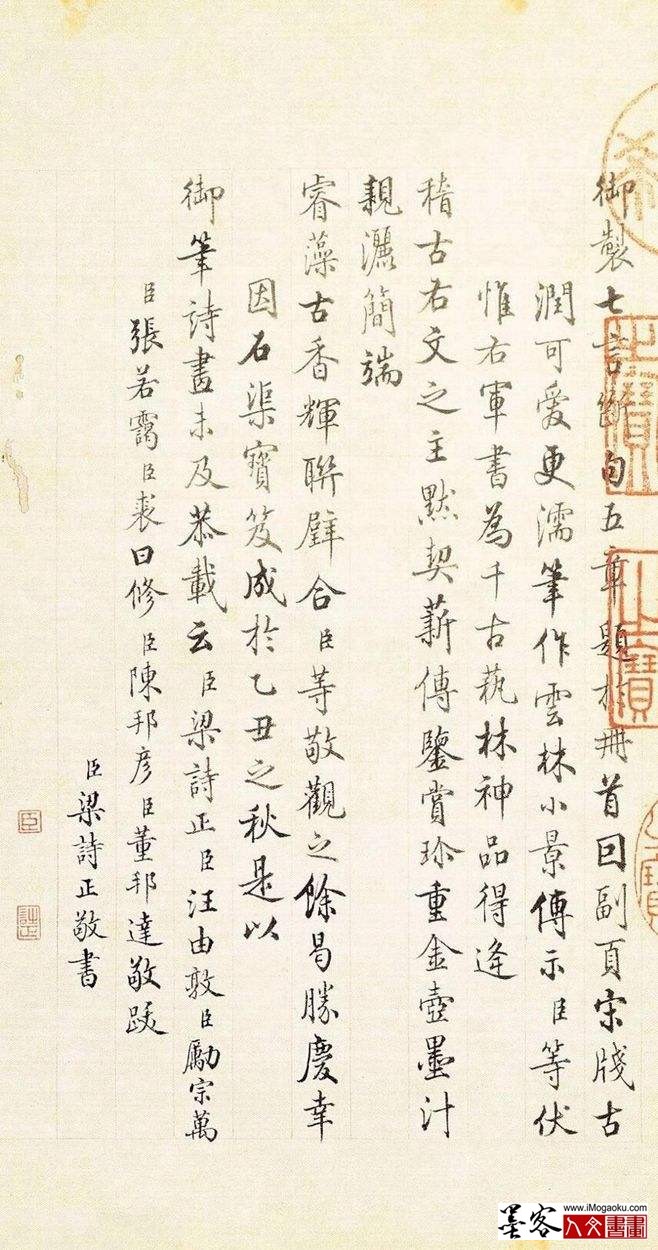 御製七言斷句五章題於冊首回副頁宋牋古
潤可愛更濡筆作雲林小景傳示臣等伏
惟右軍書為千古蓺林神品得逢
稽古右文之主默契薪傳鑒賞珍重金壺墨汁
親灑簡端
睿藻古香輝聯璧合臣等敬觀之餘曷勝慶幸
因石渠寶笈成於乙丑之秋是以
御筆詩畫未及恭載云臣梁詩正臣汪由敦臣勵宗萬
臣張若靄臣裘曰修臣陳邦彥臣董邦達敬跋
臣梁詩正敬書
臣
詩正
墨客
www.iMogaoku.com
人文書畫